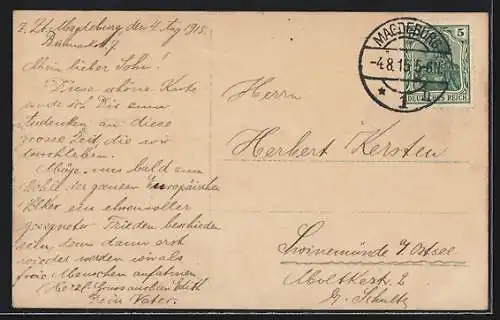 z. Zt. Magdeburg, den 4. Aug 1915.
Bismarckstr. 7
Mein lieber Sohn!
Diese schöne Karte
sende ich Dir zum
Andenken an diese
grosse Zeit, die wir
durchleben.
Möge uns bald zum
Wohle der ganzen Europäischen
Völker ein ehrenvoller
gesegneter Frieden beschieden
sein, denn dann erst
wieder werden wir als
freie Menschen aufatmen.
Herzl. Gruss auch an Edith
Dein Vater.
MAGDEBURG
-4.8.15.5-6N
* 1
5
DEUTSCHES REICH
Herrn
Herbert Kersten
Swinemünde a/Ostsee
Moltkestr. 2
b/ Schultz